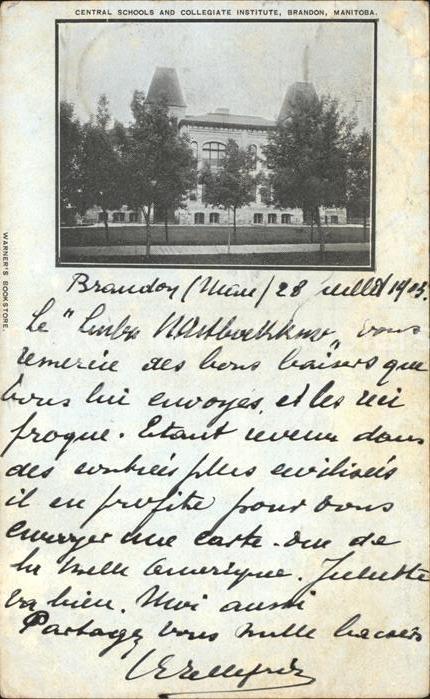 CENTRAL SCHOOLS AND COLLEGIATE INSTITUTE, BRANDON, MANITOBA.
WARNER'S BOOKSTORE.
Brandon (Man) 28 juillet 19
Le " vous
remercie des bons baisers que
vous lui envoyés, et les réci
proque. Etant revenu dans
des contrées plus civilisés
il en profite pour vous
envoyer une carte-vue de
la belle Amérique. Juliette
va bien. Moi aussi
Partagez vous mille baisers